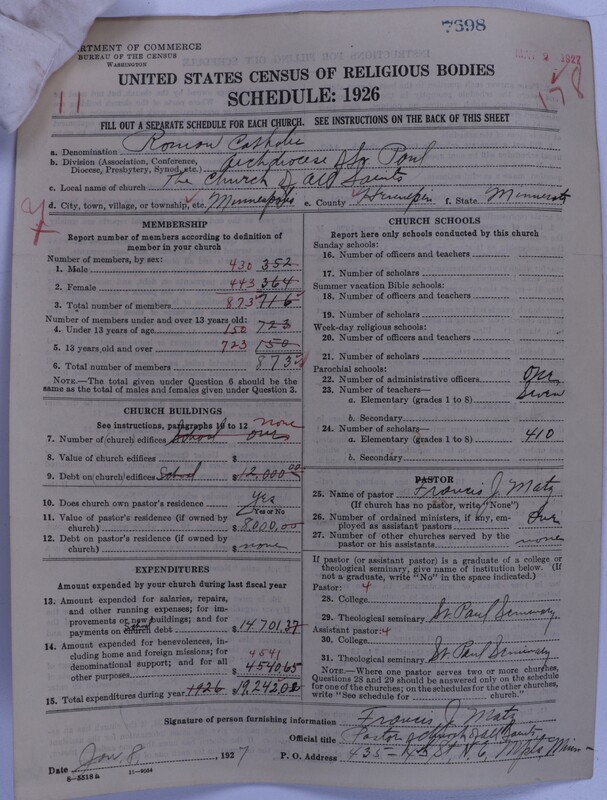 7398
DEPARTMENT OF COMMERCE
BUREAU OF THE CENSUS
WASHINGTON
MAY 2 1927
UNITED STATES CENSUS OF RELIGIOUS BODIES
SCHEDULE: 1926
11
178
FILL OUT A SEPARATE SCHEDULE FOR EACH CHURCH. SEE INSTRUCTIONS ON THE BACK OF THIS SHEET
a. Denomination Roman Catholic
b. Division (Association, Conference, Diocese, Presbytery, Synod, etc.) Archdiocese of St Paul
c. Local name of church The Church of All Saints
d. City, town, village, or township, etc. Minneapolis e. County Hennepin f. State Minnesota
MEMBERSHIP
Report number of members according to definition of
member in your church
Number of members, by sex:
1. Male 430 352
2. Female 443 364
3. Total number of members 873 716
Number of members under and over 13 years old:
4. Under 13 years of age 150 723
5. 13 years old and over 723 150
6. Total number of members 873
NOTE.—The total given under Question 6 should be
the same as the total of males and females given under Question 3.
CHURCH BUILDINGS
See instructions, paragraphs 10 to 12 none
7. Number of (church) edifices School one
8. Value of church edifices $
9. Debt on (church) edifices School $12,000.00
10. Does church own pastor's residence Yes
Yes or No
11. Value of pastor's residence (if owned by
church) $8000.00
12. Debt on pastor's residence (if owned by
church) $ none
EXPENDITURES
Amount expended by your church during last fiscal year
13. Amount expended for salaries, repairs,
and other running expenses; for im-
provements or new buildings; and for
payments on church debt School $14701.37
14. Amount expended for benevolences, in-
cluding home and foreign missions; for
denominational support; and for all
other purposes 4541 $4540.65
15. Total expenditures during year 1926 $19,242.02
CHURCH SCHOOLS
Report here only schools conducted by this church
Sunday schools:
16. Number of officers and teachers
17. Number of scholars
Summer vacation Bible schools:
18. Number of officers and teachers
19. Number of scholars
Week-day religious schools:
20. Number of officers and teachers
21. Number of scholars
Parochial schools:
22. Number of administrative officers One
23. Number of teachers—
a. Elementary (grades 1 to 8) Seven
b. Secondary
24. Number of scholars—
a. Elementary (grades 1 to 8) 410
b. Secondary
PASTOR
25. Name of pastor Francis J. Matz
(If church has no pastor, write "None")
26. Number of ordained ministers, if any, em-
ployed as assistant pastors One
27. Number of other churches served by the
pastor or his assistants none
If pastor (or assistant pastor) is a graduate of a college or
theological seminary, give name of institution below. (If
not a graduate, write "No" in the space indicated.)
Pastor: 4
28. College
29. Theological seminary St Paul Seminary
Assistant pastor: 4
30. College
31. Theological seminary St Paul Seminary
NOTE.—Where one pastor serves two or more churches,
Questions 28 and 29 should be answered only on the schedule
for one of the churches; on the schedules for the other churches,
write "See schedule for church."
Signature of person furnishing information Francis J. Matz
Official title Pastor of Church of All Saints
Date Jan 8, 1927 P. O. Address 435-4th St, N.E, Mpls, Minn
8-5518a 11-9054